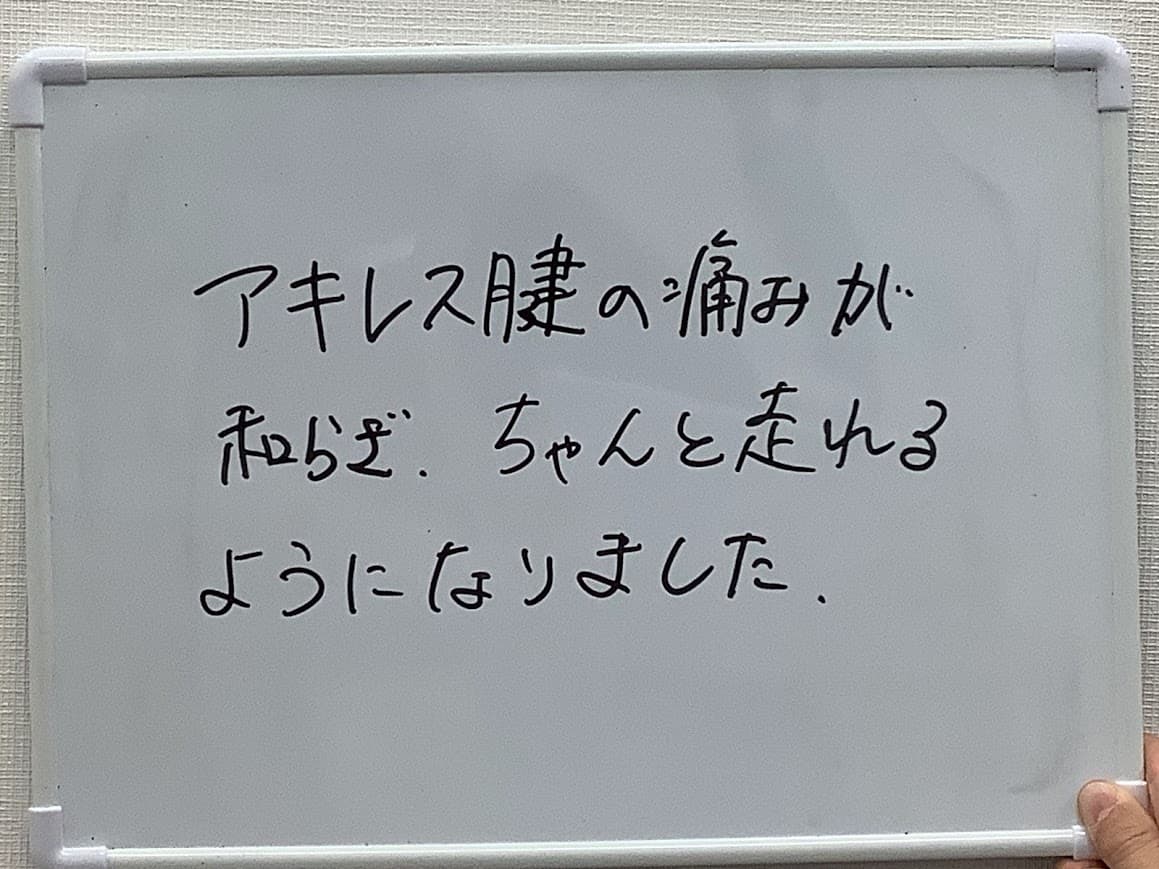 アキレス腱の痛みが
和らぎ. ちゃんと走れる
ようになりました.